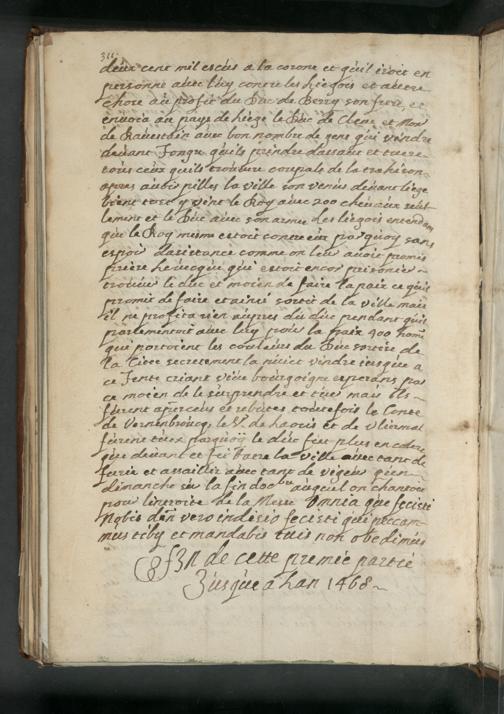 311
deux cent mil escus a la corone et quil iroit en
personne avec luy contre les liegois et autre
chose au profit du Duc de Berry son frere, et
envoia au pays de liege le Duc de Cleve et Mon
de Ravestein avec bon nombre de gens qui vindre
devant Tongre quils prindre dassaut et tuere
tous ceux quils trouvere coupals de la trahison
apres avoir pilles la ville son venus devant liege
bient tost y vint le Roy avec 200 chevaux
lement et le Duc avec son armee des liegois entendans
que le Roy mesme estoit contre eux pourquoy sans
espoir dasistance comme on leur avoit promis
prière levecque qui estoit encor prisonier
trouver le duc et moien de faire la paix ce quil
promit de faire et ainsi sortit de la ville mais
il ne profita rien aupres du duc pendant quil
parlementoit avec luy pour la paix 400 homs
qui portoient les couleurs du Duc sortire de
la Citee secretement la nuict vindre iusque a
ce Tente criant vive bourgoigne esperans par
ce moien de le surprendre et tuer mais ils
furent apperceus et rebutes toutefois le Conte
de Vernenbourcq, le Sr de haouis et de
furent tuez parquoy le duc fut plus en colere
que devant et fit batre la ville avec tant de
furie et assaillir avec tant de vigeur quen
dimanche sur la fin doobre auquel on chantoit
pour lintroite de la Messe Omnia que fecisti
Nobis dñe vero in disio fecisti qui peccavi
mus tiby et mandatis tuis non obedimus
Fin de cette premie partie
Jusque a lan 1468